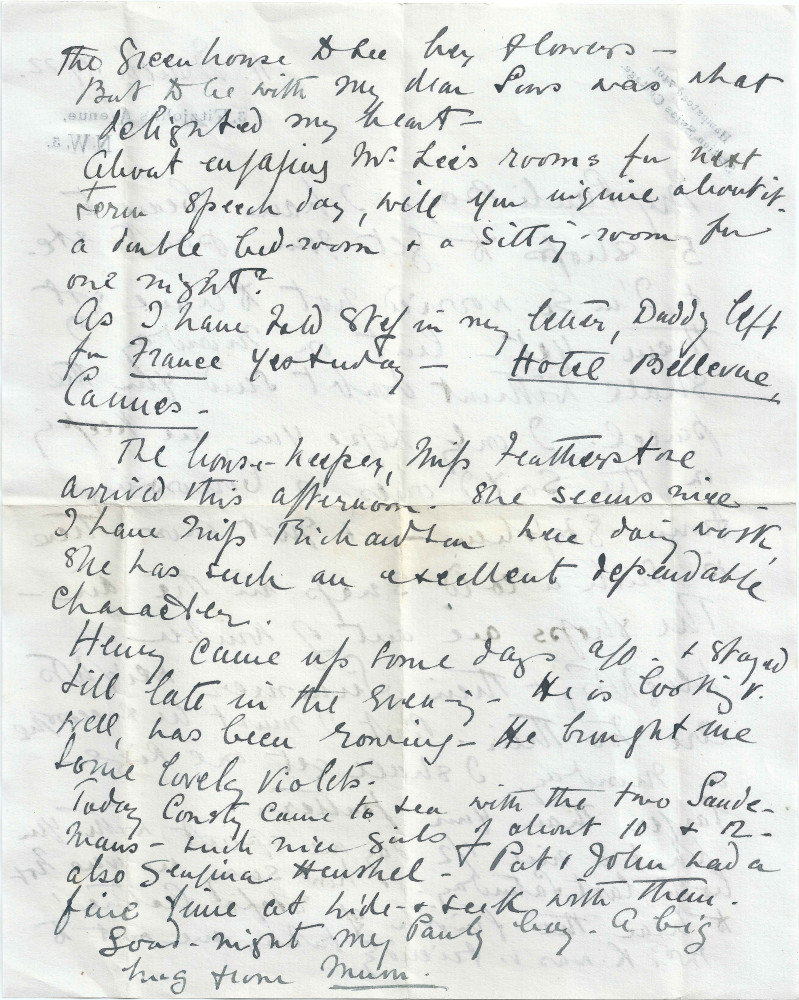 the Greenhouse to see her flowers –
But to be with my dear Sons was what
delighted my heart –
About engaging Mr. Lee's rooms for next
term Speech day, will you inquire about it.
a double bed-room & a sitting-room for
one night?
As I have told Stef in my letter, Daddy left
for France yesterday – Hotel Bellevue,
Cannes.
The house-keeper, Miss Featherstone
arrived this afternoon. She seems nice –
I have Miss Richardson here doing work,
She has such an excellent dependable
character.
Henry came up some days ago. & stayed
till late in the evening – He is looking v.
well, has been rowing – He brought me
some lovely violets.
Today Consty came to tea with the two Sande-
mans – such nice girls of about 10 & 12 –
also Henshel – Pat & John had a
fine time at hide-&-seek with them.
Good-night my Pauly boy. A big
hug from Mum.